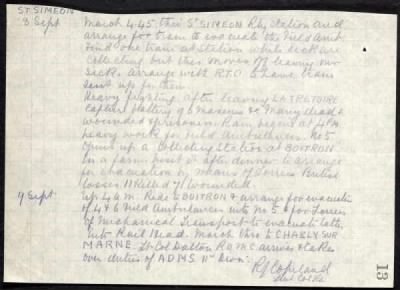 ST. SIMEON
8 Sept March 4.45 thro St SIMEON Rly Station and
arrange for train to evacuate the Field Amb.
Find one train at station while sick are
collecting but this moves off leaving our
sick. Arrange with R.T.O to have train
sent up for them.
Heavy fighting after leaving LA TRETOIRE
Capture battery of 6 maxims & Many dead &
wounded & prisoners. Rain began at 4 P.M.
heavy work for Field Ambulances. No 5
opens up a Collecting Station at BOITRON
in a farm house & after dinner to arrange
for evacuation by means of Lorries British
losses 11 Killed 71 wounded.
9 Sept. Up 4 a.m. Ride to BOITRON & arrange for evacuation
of 4 & 6 Field Ambulances into No 5 & for Lorries
of Mechanical Transport to evacuate latter
into Rail Head. March thro to CHARLY SUR
MARNE. Lt Col Dalton RAMC arrives & takes
over duties of ADMS IInd Divn.
R J Copeland
Lt Col RA
13